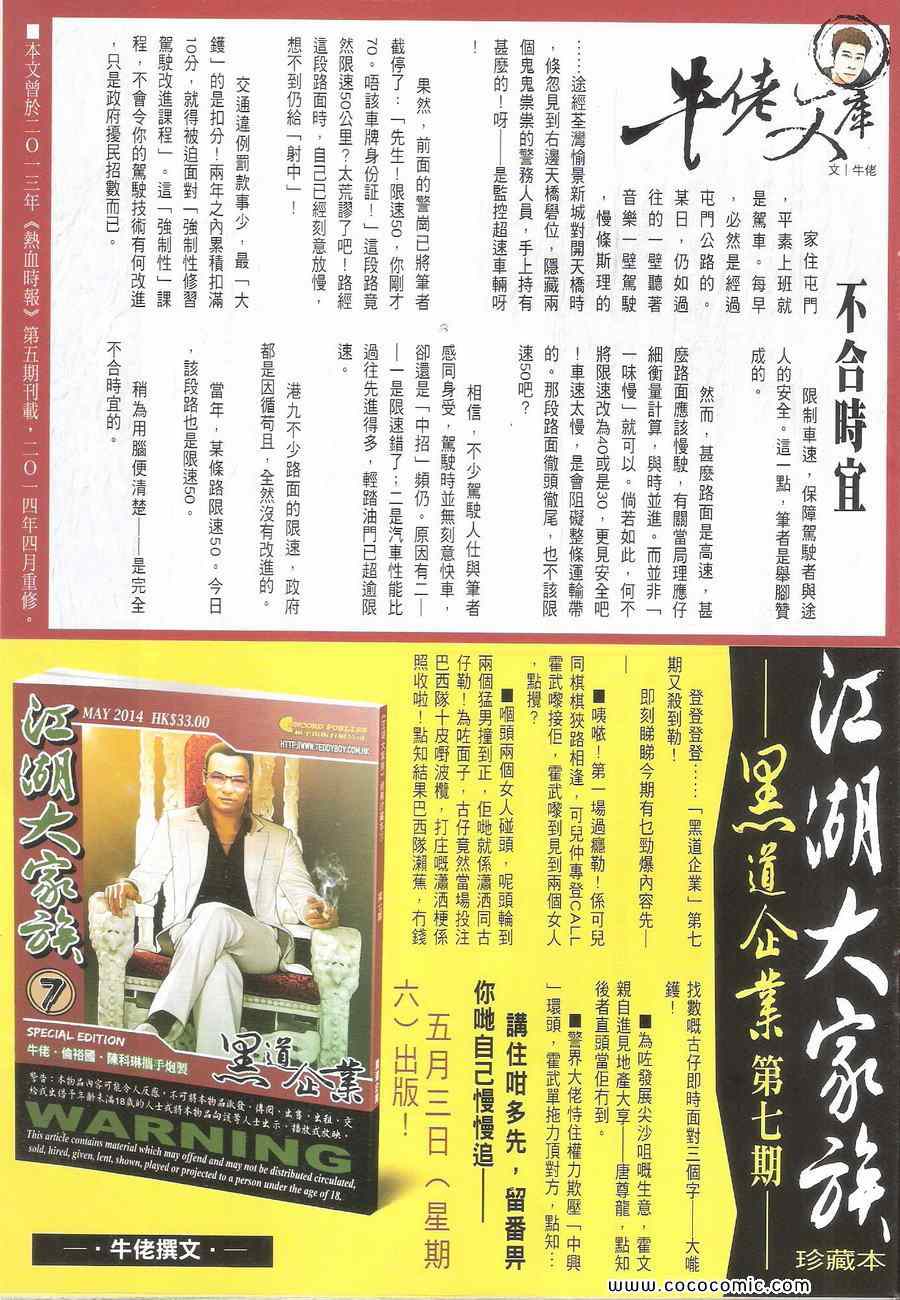 牛佬文庫
文│牛佬
不合時宜
家住屯門
，平素上班就
是駕車。每早
，必然是經過
屯門公路的。
某日，仍如過
往的一壁聽著
音樂一壁駕駛
，慢條斯理的
……途經荃灣愉景新城對開天橋時
，倏忽見到右邊天橋礐位，隱藏兩
個鬼鬼祟祟的警務人員，手上持有
甚麼的！呀——是監控超速車輛呀
！
果然，前面的警崗已將筆者
截停了：「先生！限速50，你剛才
70。唔該車牌身份証！」這段路竟
然限速50公里？太荒謬了吧！路經
這段路面時，自己已經刻意放慢，
想不到仍給「射中」！
交通違例罰款事少，最「大
鑊」的是扣分！兩年之內累積扣滿
10分，就得被迫面對「強制性修習
駕駛改進課程」。這「強制性」課
程，不會令你的駕駛技術有何改進
，只是政府擾民招數而已。
限制車速，保障駕駛者與途
人的安全。這一點，筆者是舉腳贊
成的。
然而，甚麼路面是高速，甚
麼路面應該慢駛，有關當局理應仔
細衡量計算，與時並進。而並非「
一味慢」就可以。倘若如此，何不
將限速改為40或是30，更見安全吧
！車速太慢，是會阻礙整條運輸帶
的。那段路面徹頭徹尾，也不該限
速50吧？
相信，不少駕駛人仕與筆者
感同身受，駕駛時並無刻意快車，
卻還是「中招」頻仍。原因有二——
——一是限速錯了；二是汽車性能比
過往先進得多，輕踏油門已超逾限
速。
港九不少路面的限速，政府
都是因循苟且，全然沒有改進的。
當年，某條路限速50。今日
，該段路也是限速50。
稍為用腦便清楚——是完全
不合時宜的。
■本文曾於二〇一三年《熱血時報》第五期刊載，二〇一四年四月重修。
江湖大家族
珍藏本
——黑道企業第七期——
登登登登……「黑道企業」第七
期又殺到勒！
即刻睇睇今期有乜勁爆內容先—
—
■咦𠺢！第一場過癮勒！係可兒
同棋棋狹路相逢，可兒仲專登CALL
霍武嚟接佢，霍武嚟到見到兩個女人
，點攪？
■嗰頭兩個女人碰頭，呢頭輪到
兩個猛男撞到正，佢哋就係瀟洒同古
仔勒！為咗面子，古仔竟然當場投注
巴西隊十皮嘢波欖，打庄嘅瀟洒梗係
照收啦！點知結果巴西隊瀨蕉，冇錢
找數嘅古仔即時面對三個字——大嚿
鑊！
■為咗發展尖沙咀嘅生意，霍文
親自進見地產大享——唐尊龍，點知
後者直頭當佢冇到。
■警界大佬恃住權力欺壓「中興
」環頭，霍武單拖力頂對方，點知…
講住咁多先，留番畀
你哋自己慢慢追——
五月三日（星期
六）出版！
MAY 2014 HK$33.00
HTTP://WWW.TEDDYBOY.COM.HK
江湖大家族
7
SPECIAL EDITION
牛佬·倫裕國·陳科琳攜手炮製
黑道企業
警告：本物品內容可能令人反感，不可將本物品派發、傳閱、出售、出租、交
給或出借予年齡未滿18歲的人士或將本物品向該等人士出示、播放或放映。
WARNING
This article contains material which may offend and may not be distributed circulated,
sold, hired, given, lent, shown, played or projected to a person under the age of 18.
—·牛佬撰文·—
www.cococomic.com